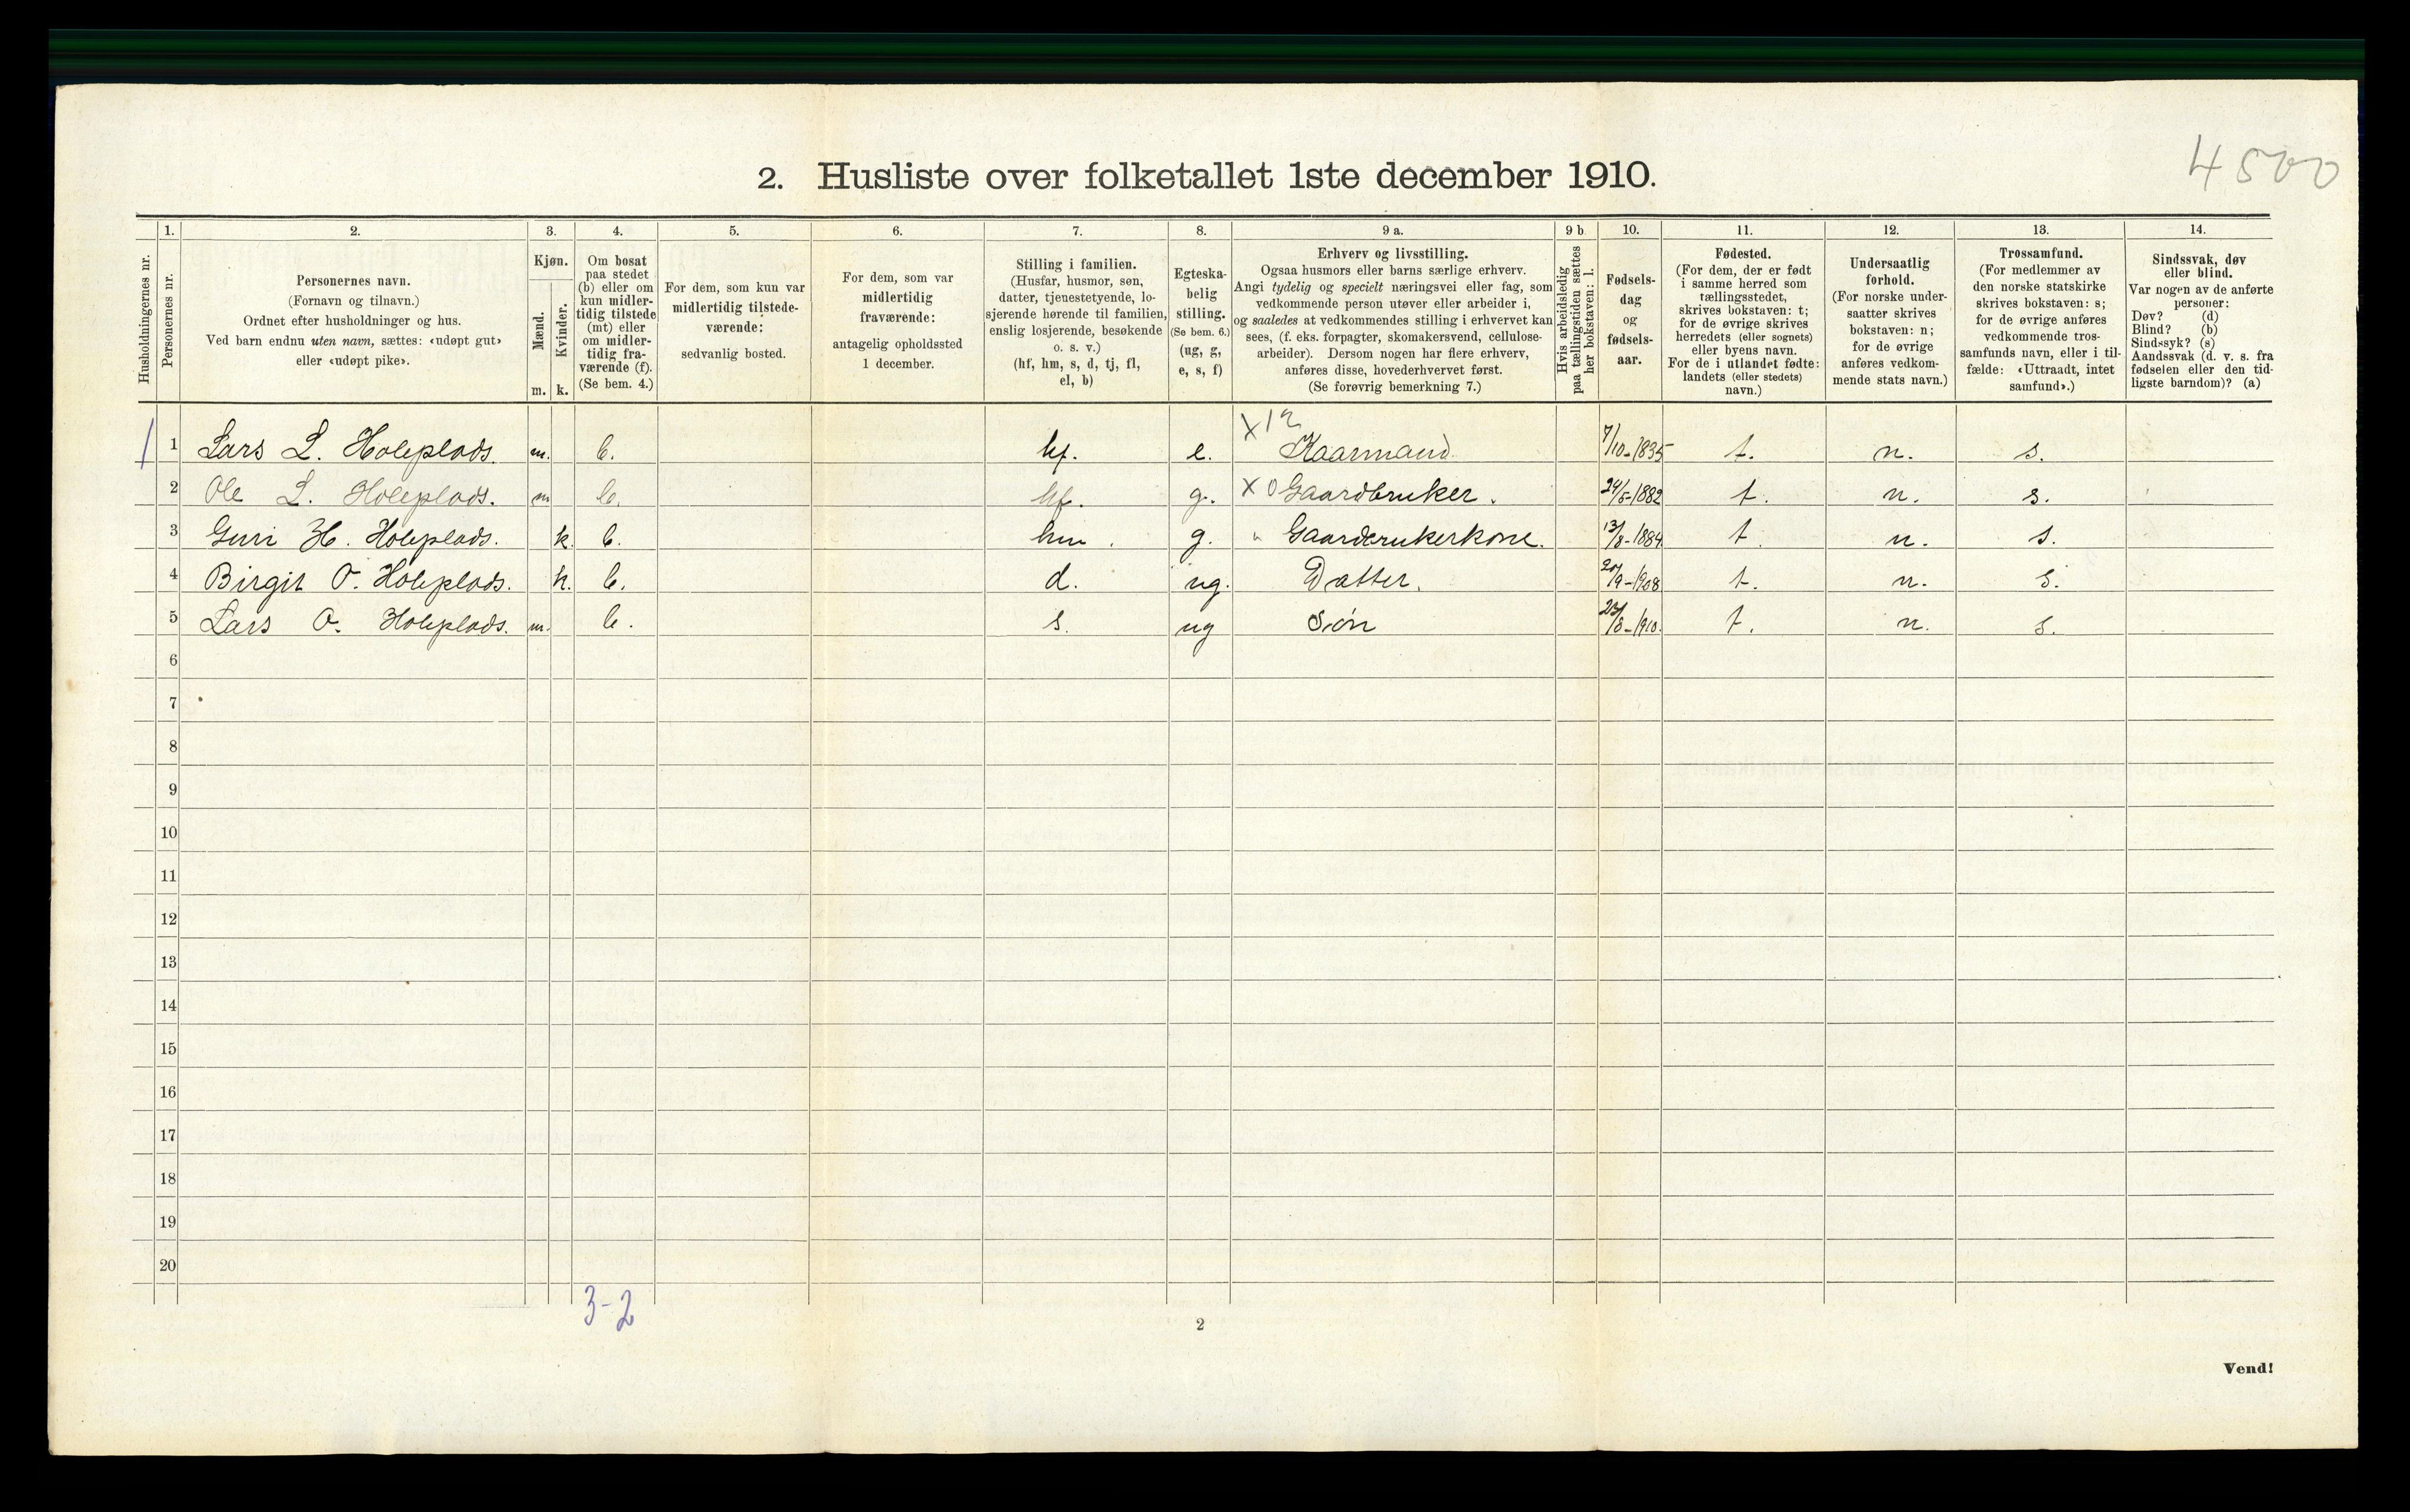 4500
2. Husliste over folketallet 1ste december 1910.
Husholdningernes nr.
1.
Personernes nr.
2.
Personernes navn.
(Fornavn og tilnavn.)
Ordnet efter husholdninger og hus.
Ved barn endnu uten navn, sættes: «udøpt gut»
eller «udøpt pike».
3.
Kjøn.
Mænd.
Kvinder.
m. k.
4.
Om bosat
paa stedet
(b) eller om
kun midler-
tidig tilstede
(mt) eller
om midler-
tidig fra-
værende (f).
(Se bem. 4.)
5.
For dem, som kun var
midlertidig tilstede-
værende:
sedvanlig bosted.
6.
For dem, som var
midlertidig
fraværende:
antagelig opholdssted
1 december.
7.
Stilling i familien.
(Husfar, husmor, søn,
datter, tjenestetyende, lo-
sjerende hørende til familien,
enslig losjerende, besøkende
o. s. v.)
(hf, hm, s, d, tj, fl,
el, b)
8.
Egteska-
belig
stilling.
(Se bem. 6.)
(ug, g,
e, s, f)
9 a.
Erhverv og livsstilling.
Ogsaa husmors eller barns særlige erhverv.
Angi tydelig og specielt næringsvei eller fag, som
vedkommende person utøver eller arbeider i,
og saaledes at vedkommendes stilling i erhvervet kan
sees, (f. eks. forpagter, skomakersvend, cellulose-
arbeider). Dersom nogen har flere erhverv,
anføres disse, hovederhvervet først.
(Se forøvrig bemerkning 7.)
9 b
Hvis arbeidsledig
paa tællingstiden sættes
her bokstaven: l.
10.
Fødsels-
dag
og
fødsels-
aar.
11.
Fødested.
(For dem, der er født
i samme herred som
tællingsstedet,
skrives bokstaven: t;
for de øvrige skrives
herredets (eller sognets)
eller byens navn.
For de i utlandet fødte:
landets (eller stedets)
navn.)
12.
Undersaatlig
forhold.
(For norske under-
saatter skrives
bokstaven: n;
for de øvrige
anføres vedkom-
mende stats navn.)
13.
Trossamfund.
(For medlemmer av
den norske statskirke
skrives bokstaven: s;
for de øvrige anføres
vedkommende tros-
samfunds navn, eller i til-
fælde: «Uttraadt, intet
samfund».)
14.
Sindssvak, døv
eller blind.
Var nogen av de anførte
personer:
Døv? (d)
Blind? (b)
Sindssyk? (s)
Aandssvak (d. v. s. fra
fødselen eller den tid-
ligste barndom)? (a)
X 12
1 Lars L. Holeplads. m. b. hf. e. Kaarmand 7/10-1835 t. n. s.
2 Ole L. Holeplads. m b. hf. g. X 0 Gaardbruker. 24/5-1882 t. n. s.
3 Guri H. Holeplads. k. b. hm. g. " Gaardrukerkone. 13/8-1884 t. n. s.
4 Birgit O. Holeplads. k. b. d. ug. Datter. 20/9-1908 t. n. s.
5 Lars O. Holeplads. m. b. s. ug Søn 23/8-1910. t. n. s.
6
7
8
9
10
11
12
13
14
15
16
17
18
19
20
3-2
2
Vend!